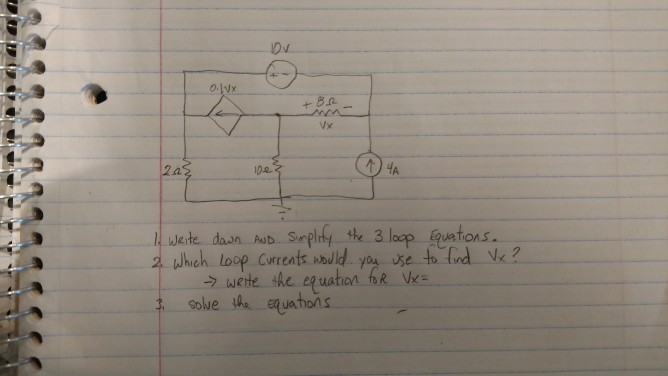 10V
+ -
0.1Vx
+ 8Ω -
Vx
2Ω
10Ω
4A
1. Write down AND Simplify the 3 loop Equations.
2. Which Loop Currents would you use to find Vx?
→ write the equation for Vx=
3. solve the equations